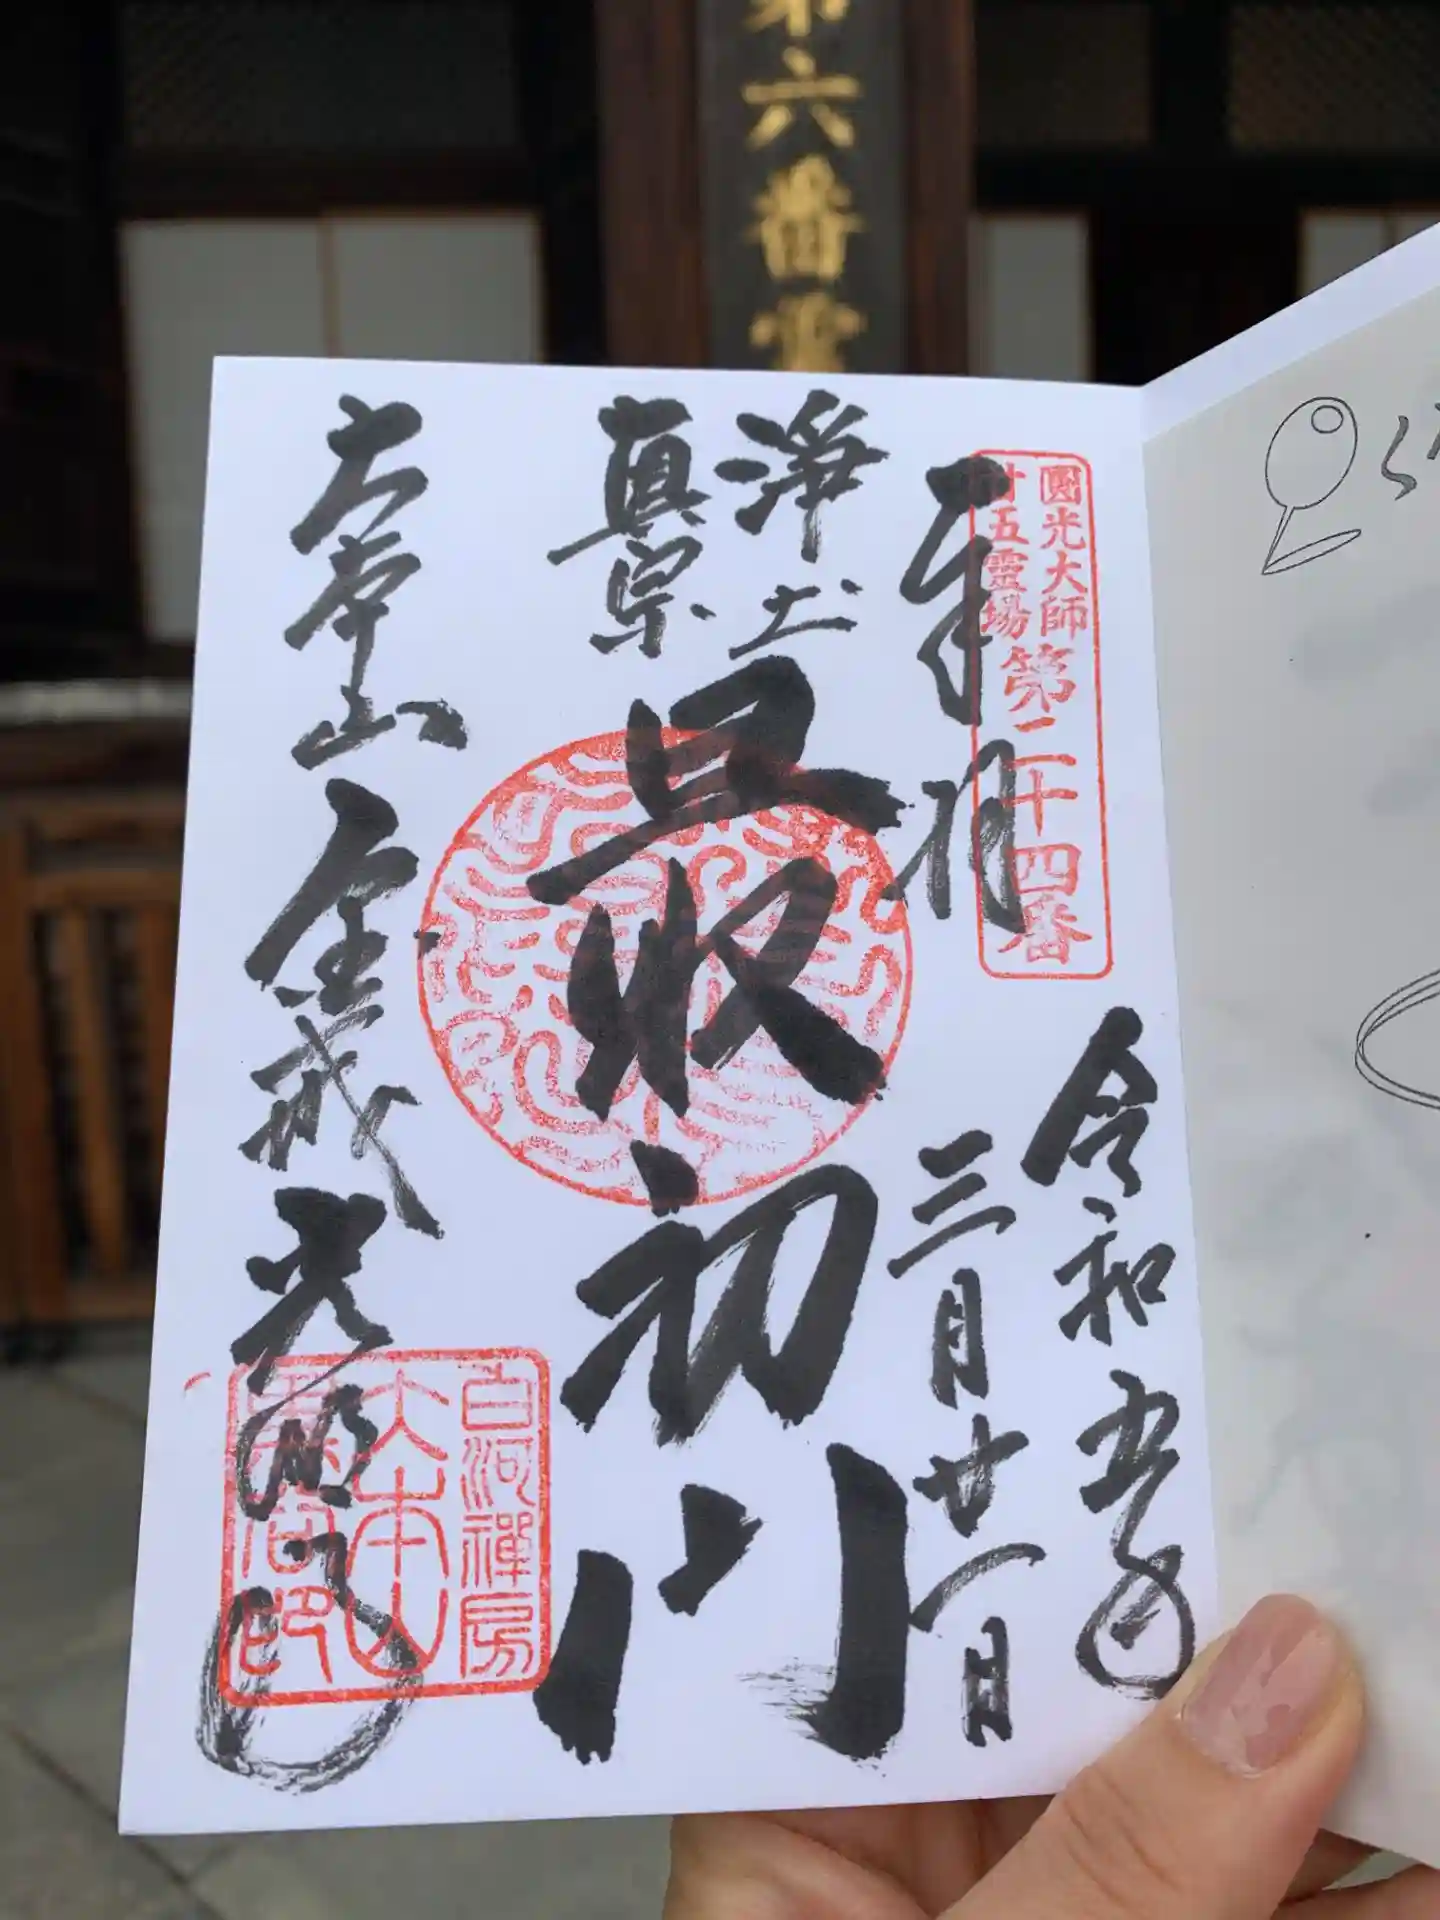 第六番霊
圓光大師
廿五霊場
第二十四番
奉拝
令和五年
三月廿一日
浄土
真宗
最初門
大本山金戒光明寺
白河禅房
大本山